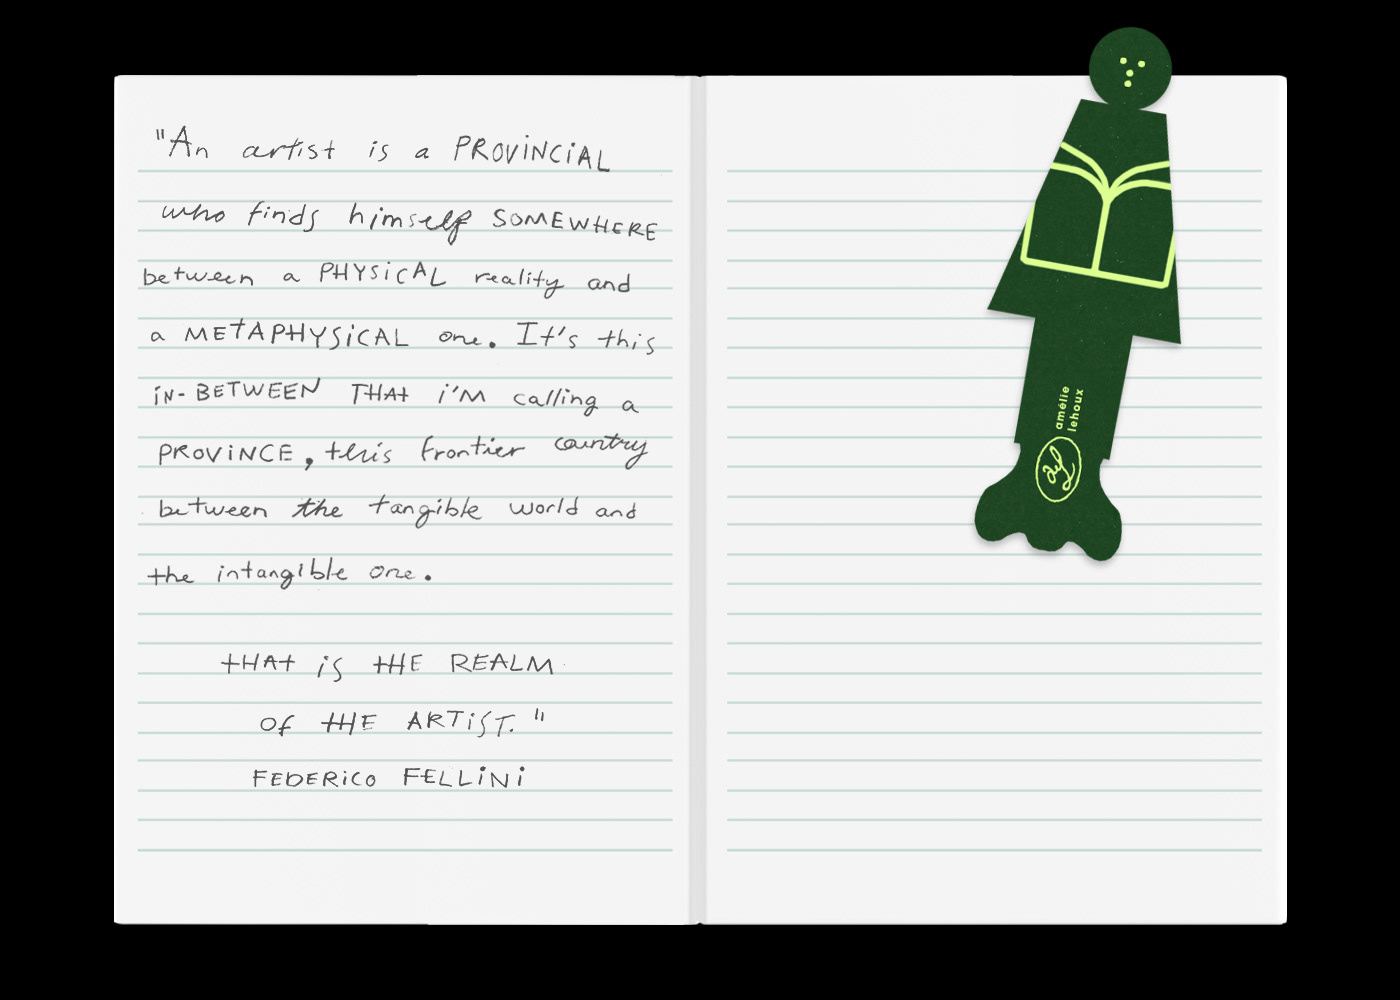 "An artist is a PROVINCIAL
who finds himself SOMEWHERE
between a PHYSICAL reality and
a METAPHYSICAL one. It's this
in-BETWEEN THAT i'M calling a
PROVINCE, this frontier country
between the tangible world and
the intangible one.
THAT is tHE REALM
Of tHE ARTiST."
FEDERiCO FELLiNi
amélie
lehoux